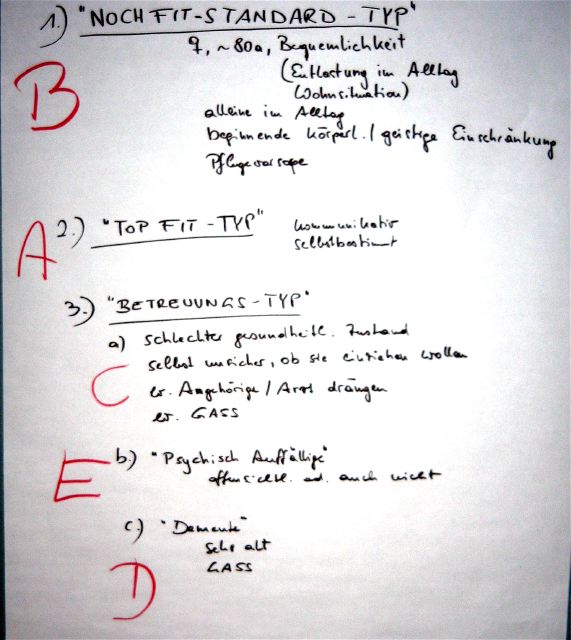 1.) "NOCH FIT-STANDARD-TYP"
♀, ~80a, Bequemlichkeit
(Entlastung im Alltag
Wohnsituation)
alleine im Alltag
beginnende körperl./geistige Einschränkung
Pflegevorsorge
B
A 2.) "TOP FIT-TYP" kommunikativ
selbstbestimmt
3.) "BETREUUNGS-TYP"
a) schlechter gesundheitl. Zustand
selbst unsicher, ob sie einziehen wollen
C ev. Angehörige/Arzt drängen
ev. GASS
E b.) "Psychisch Auffällige"
offensichtl. od. auch nicht
c.) "Demente"
sehr alt
GASS
D